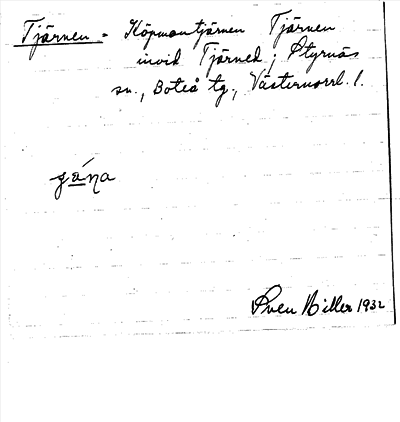 Tjärnen - Köpmantjärnen Tjärnen
invid Tjärned; Styrnäs
sn., Boteå tg., Västernorrl. l.
Sven Hiller 1932